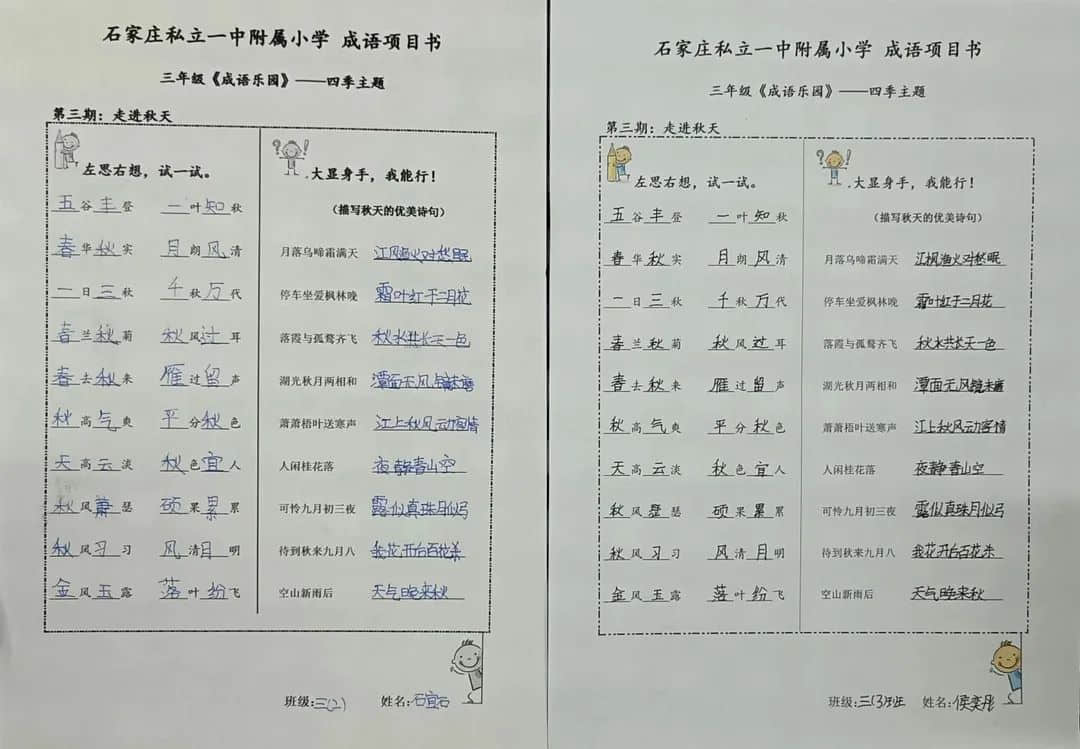 石家庄私立一中附属小学 成语项目书
三年级《成语乐园》——四季主题
第三期：走进秋天
左思右想，试一试。
五谷丰登 一叶知秋
春华秋实 月朗风清
一日三秋 千秋万代
春兰秋菊 秋风过耳
春去秋来 雁过留声
秋高气爽 平分秋色
天高云淡 秋色宜人
秋风萧瑟 硕果累累
秋风习习 风清月明
金风玉露 落叶纷飞
?! .大显身手，我能行！
（描写秋天的优美诗句）
月落乌啼霜满天 江风渔火对愁眠
停车坐爱枫林晚 霜叶红于二月花
落霞与孤鹜齐飞 秋水共长天一色
湖光秋月两相和 潭面无风镜未磨
萧萧梧叶送寒声 江上秋风动客情
人闲桂花落 夜静春山空
可怜九月初三夜 露似真珠月似弓
待到秋来九月八 我花开台百花杀
空山新雨后 天气晚来秋
班级:三(2) 姓名:石宜石
石家庄私立一中附属小学 成语项目书
三年级《成语乐园》——四季主题
第三期：走进秋天
左思右想，试一试。
五谷丰登 一叶知秋
春华秋实 月朗风清
一日三秋 千秋万代
春兰秋菊 秋风过耳
春去秋来 雁过留声
秋高气爽 平分秋色
天高云淡 秋色宜人
秋风瑟 硕果累累
秋风习习 风清月明
金风玉露 落叶纷飞
?! .大显身手，我能行！
（描写秋天的优美诗句）
月落乌啼霜满天 江枫渔火对愁眠
停车坐爱枫林晚 霜叶红于二月花
落霞与孤鹜齐飞 秋水共长天一色
湖光秋月两相和 潭面无风镜未磨
萧萧梧叶送寒声 江上秋风动客情
人闲桂花落 夜静春山空
可怜九月初三夜 露似真珠月似弓
待到秋来九月八 我花开台百花杀
空山新雨后 天气晚来秋
班级:三(3)班 姓名:侯奕彤